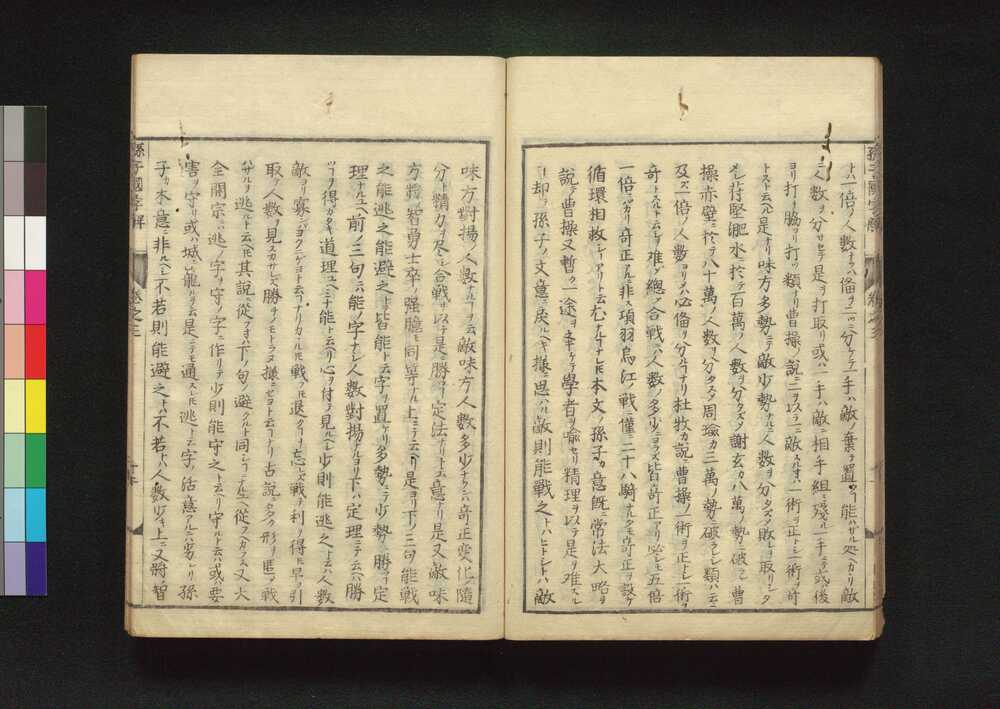 孫子國字解
卷之三
トハ一倍ノ人数ナラハ備ヲ二ツニ分ケテ一手ハ敵ノ棄テ置コ能ハサル処ヘカヽリ敵
ノ人数ヲ分サセテ是ヲ打取リ或ハ一手ハ敵ニ相手組ミ殘ル一手ニテ或ハ後
ヨリ打チ脇ヨリ打ツ類ナリ曹操ノ説ニ二ヲ以テ一ニ敵スルトキハ一術ヲ正トシ一術ヲ奇
トスト云ヘルハ是ナリ味方多勢ニテ敵少勢ナルニ人数ヲ分タスメ敗ヲ取リシタ
メシ苻堅淝水ニ於テ百萬ノ人数ヲ分タスメ謝玄カ八萬ノ勢ニ破ラレ曹
操赤壁ニ於テ八十萬ノ人数ヲ分タスメ周瑜カ三萬ノ勢ニ破ラレシ類ハ云ニ
及ハス一倍ノ人数ヨリハ必備ヲ分ルコナリ杜牧カ説ニ曹操ノ一術ヲ正トシ一術ヲ
奇トスルト云ヲ難ス總ノ合戦ハ人数ノ多少ニヨラス皆奇正アリ必シモ五倍
一倍ハカリ奇正アルニ非ス項羽烏江ノ戦ニ僅ニ二十八騎ナルタモ奇正ヲ設ケ
循環相救シコアリト云タルコナレ𪜈本文ノ孫子カ意既ニ常法大略ヲ
説ク曹操又暫ク一途ヲ挙ケテ學者ヲ喩セリ精理ヲ以テ是ヲ難スルハ
却テ孫子ノ文意ニ戻ルヘキ様ニ思ハル敵則能戦之トハヒトシトハ敵
味方對揚ノ人数ナルコヲ云敵味方人数多少ナクンハ奇正変化ニ隨
分ト精力ヲ尽シ合戦ヲ以テ是ニ勝コ定法ナリト云意ナリ是又敵味
方ノ将ノ智勇士卒ノ強臆モ同等ナル上ニテ云ヘリ是ヨリ下ノ三句能戦
之能逃之能避之ト皆能ト云字ヲ置ケリ多勢ニテ少勢ニ勝コハ定
理ナルユヘ前ノ三句ニハ能ノ字ナシ人数對揚ナルヨリ下ハ定理ニテ云ヘハ勝
コヲ得カタキ道理ユヘ三ツナカラ能ト云リ心ヲ付テ見ルヘシ少則能逃之トハ人数
敵ヨリ寡クハヨクニケヨト云コナリカヽル𪜈戦ヲ退クコヲ忘レス戦テ利ヲ得𪜈早ク引
取テ人数ヲ見スカサレス勝ヲモトラヌ様ニセヨト云コナリ古説ニヨク形ヲ匿ノ戦
ハサルヲ逃ルト云ヘ𪜈其説ニ從フトキハ下ノ句ノ避クルト同シコニナルユヘ從ヘカラス又大
全開宗ニハ逃ノ字ヲ守ノ字ニ作リテ少則能守之ト云リ守ルト云ハ或ハ要
害ヲ守リ或ハ城ニ籠ルヲ云是ニテモ通スレ𪜈逃ト云字ノ活意アルニハ劣レリ孫
子カ本意ニ非ルヘシ不若則能避之トハ不若トハ人数少キ上ニ又将智
孫子國字解
卷之三